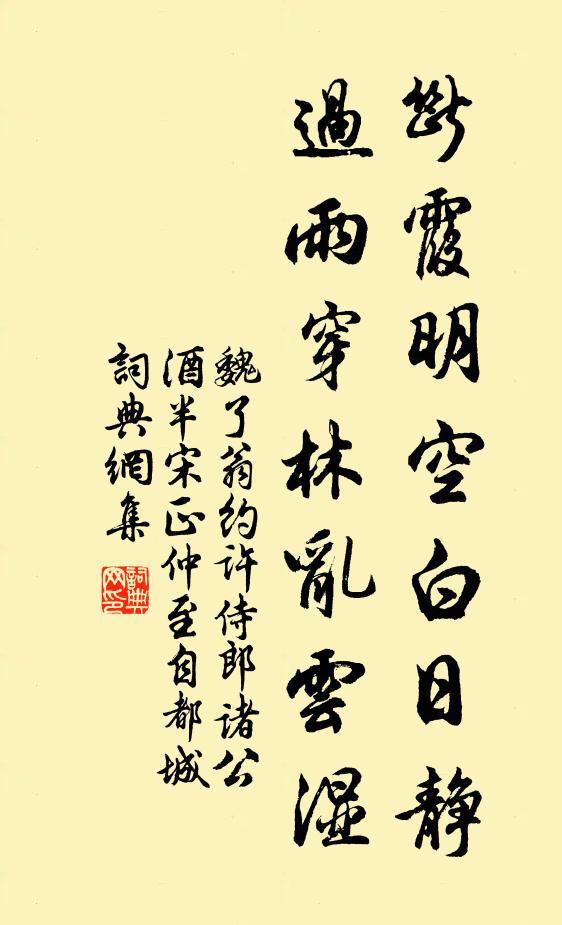 斷霞明空白日静
過雨穿林亂雲湿
魏了翁約許侍郎諸公
酒半宋正仲至自都城
詞典網集
詞典
网印